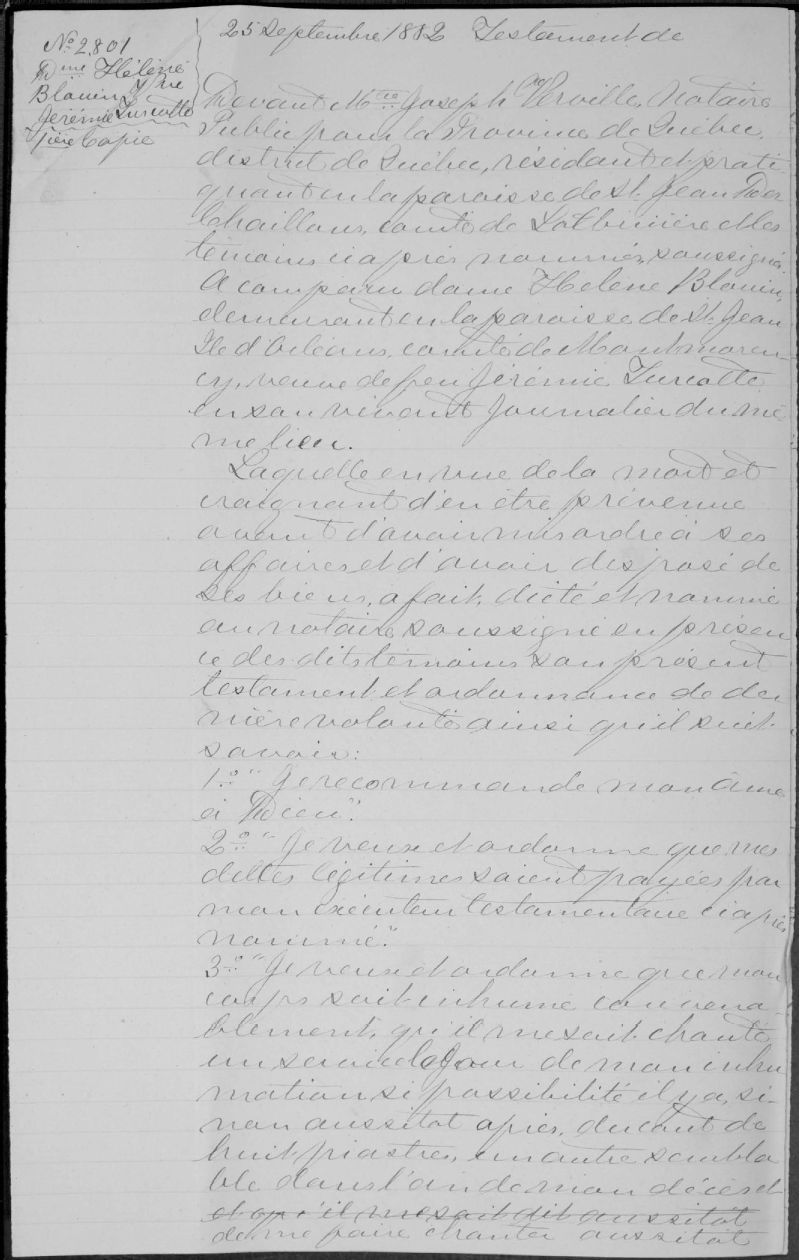 25 Septembre 1882 Testament de
No. 2,801
Dme Hélène
Blouin Vve
Jérémie Turcotte
1ière Copie
Devant Mtre Joseph Verville, Notaire
Public pour la Province de Québec,
district de Québec, résidant et prati
quant en la paroisse de St. Jean Des
chaillons, comté de Lotbinière et les
témoins ci après nommés, soussignés.
A comparu dame Hélène Blouin,
demeurant en la paroisse de St. Jean
Ile d'Orléans, comté de Montmoren-
cy, veuve de feu Jérémie Turcotte
en son vivant Journalier du mê
me lieu.
Laquelle en vue de la mort et
craignant d'en être prévenue
avant d'avoir mis ordre à ses
affaires et d'avoir disposé de
ses biens, a fait, dicté et nommé
au notaire soussigné en présen
ce des dits témoins son présent
testament et ordonnance de der
nière volonté ainsi qu'il suit
savoir:
1.o "Je recommande mon âme
à Dieu".
2.o "Je veux et ordonne que mes
dettes légitimes soient payées par
mon exécuteur testamentaire ci après
nommé."
3.o "Je veux et ordonne que mon
corps soit inhumé convena
blement, qu'il me soit chanté
un service le Jour de mon inhu
mation si possibilité il y a, si-
non aussitôt après, du coût de
huit piastres, un autre sembla
ble dans l'an de mon décès et
et qu'il me soit dit aussitôt
de me faire chanter aussitôt